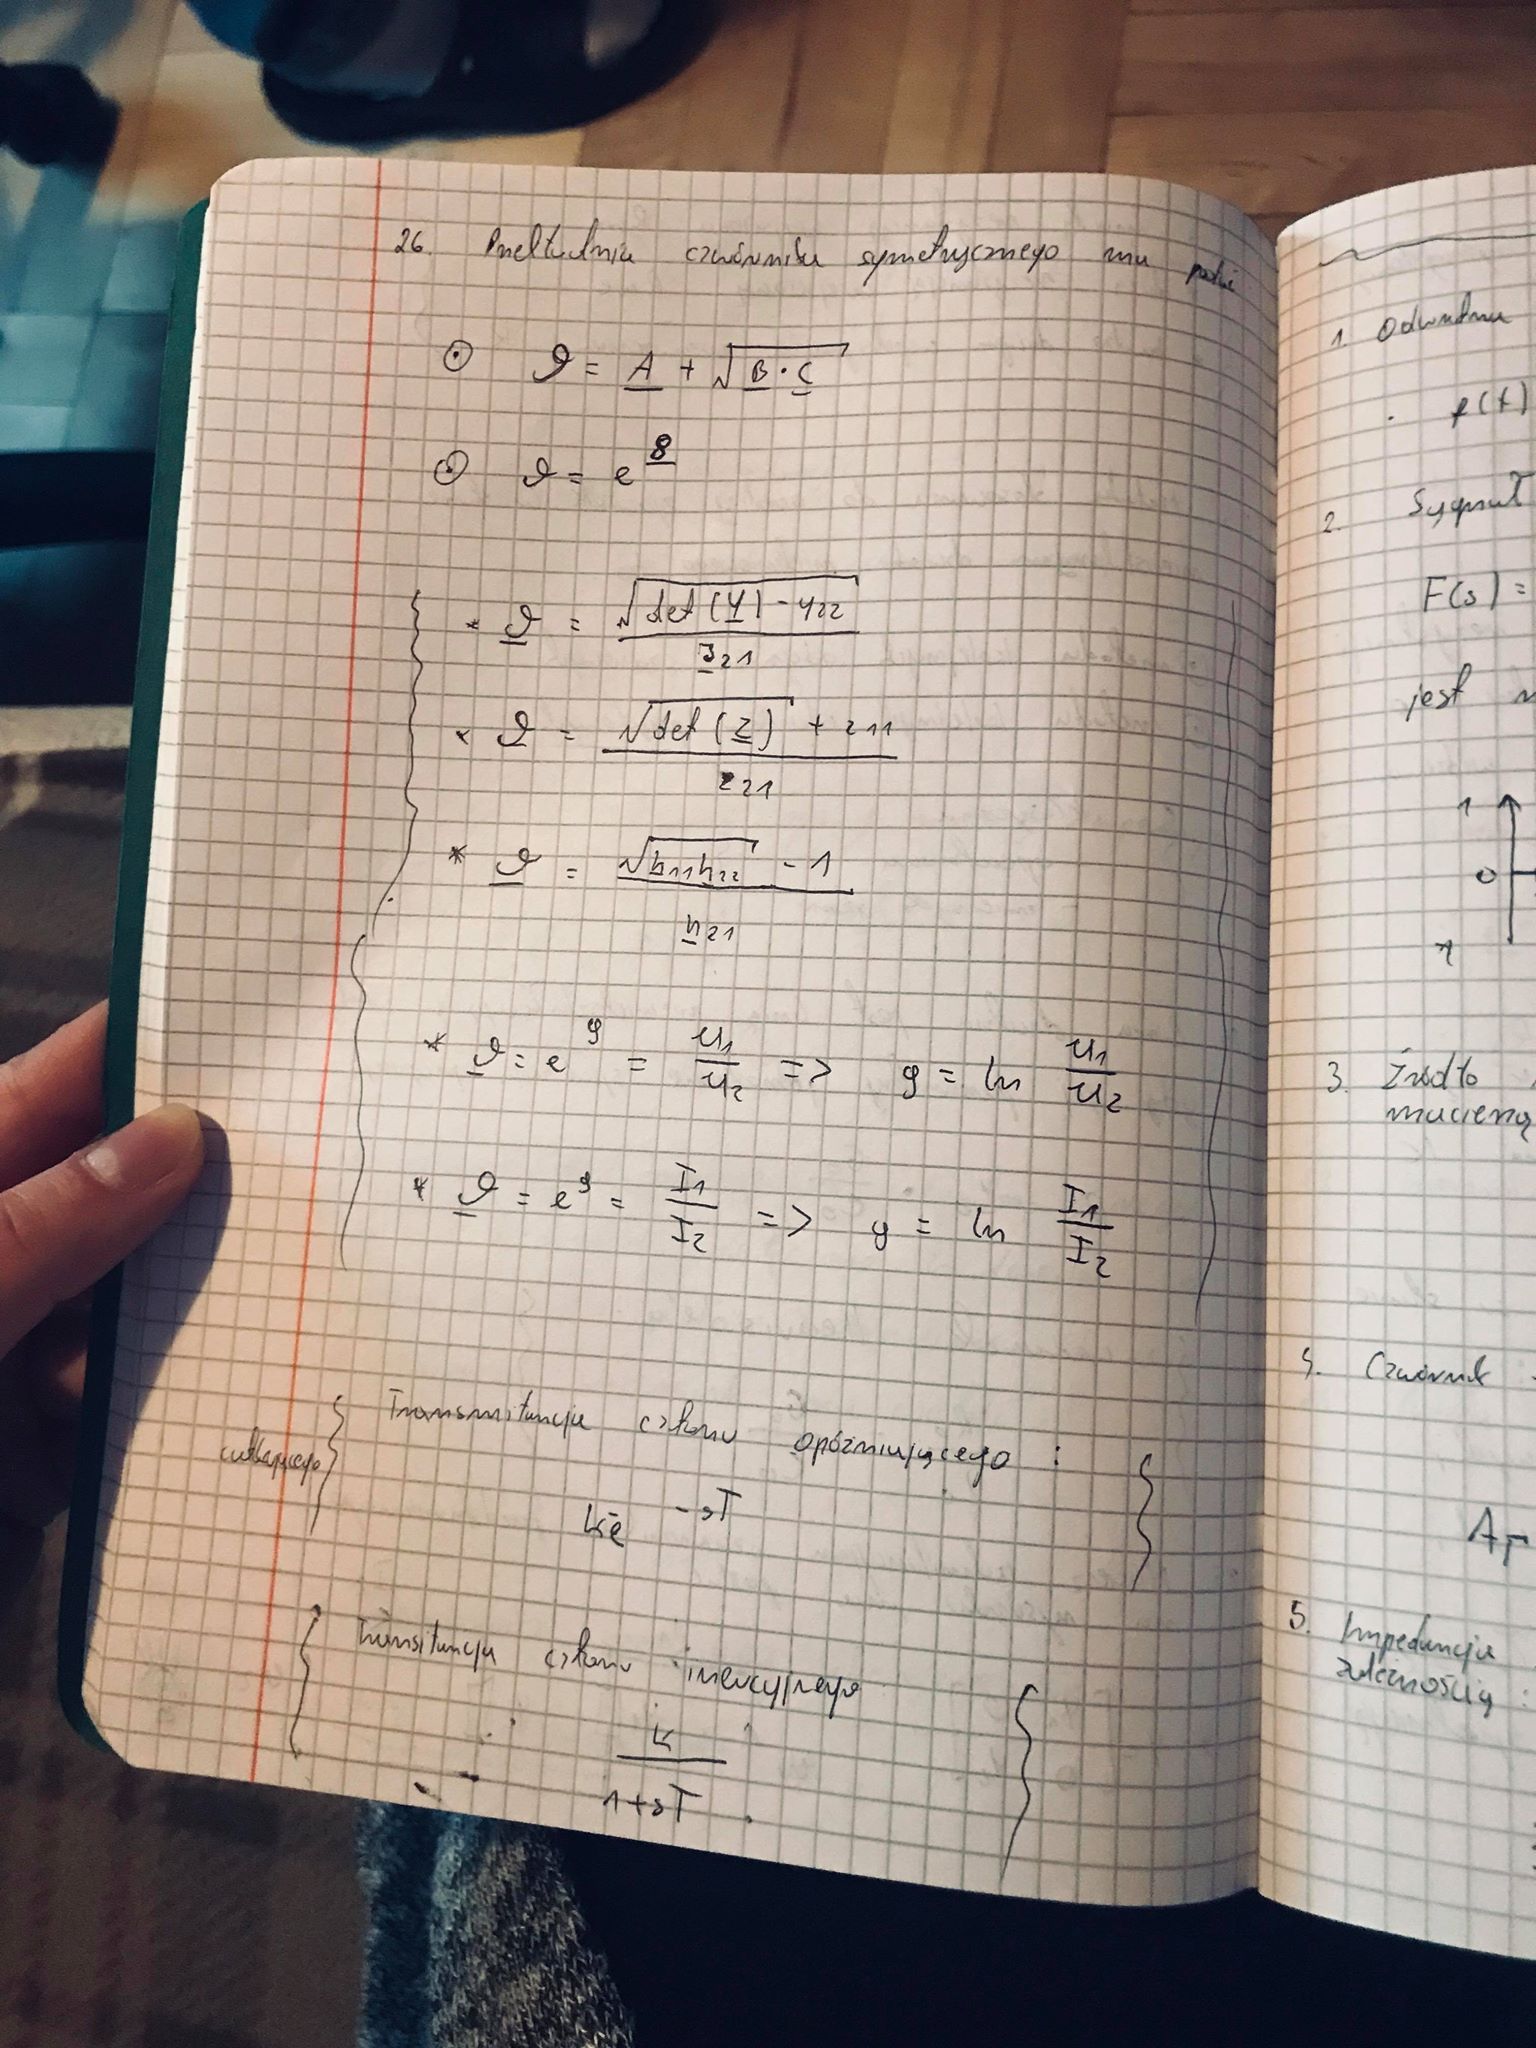 26. Przekładnia czwórnika symetrycznego ma postać
⊙ ϑ = A + √(B · C)
⊙ ϑ = e^g
* ϑ = √(det(Y) - y22) / y21
* ϑ = (√det(Z) + z11) / z21
* ϑ = (√(h11h22) - 1) / h21
* ϑ = e^g = U1/U2 => g = ln U1/U2
* ϑ = e^g = I1/I2 => g = ln I1/I2
Transmitancja członu opóźniującego :
ke^-sT
Transitancja członu inercyjnego
k / (1+sT)
1. Odwrotna
f(t)
2. Sygnał
F(s) =
jest
1
0
3. Źródło
macierzą
4. Czwórnik
5. Impedancja
zależnością :